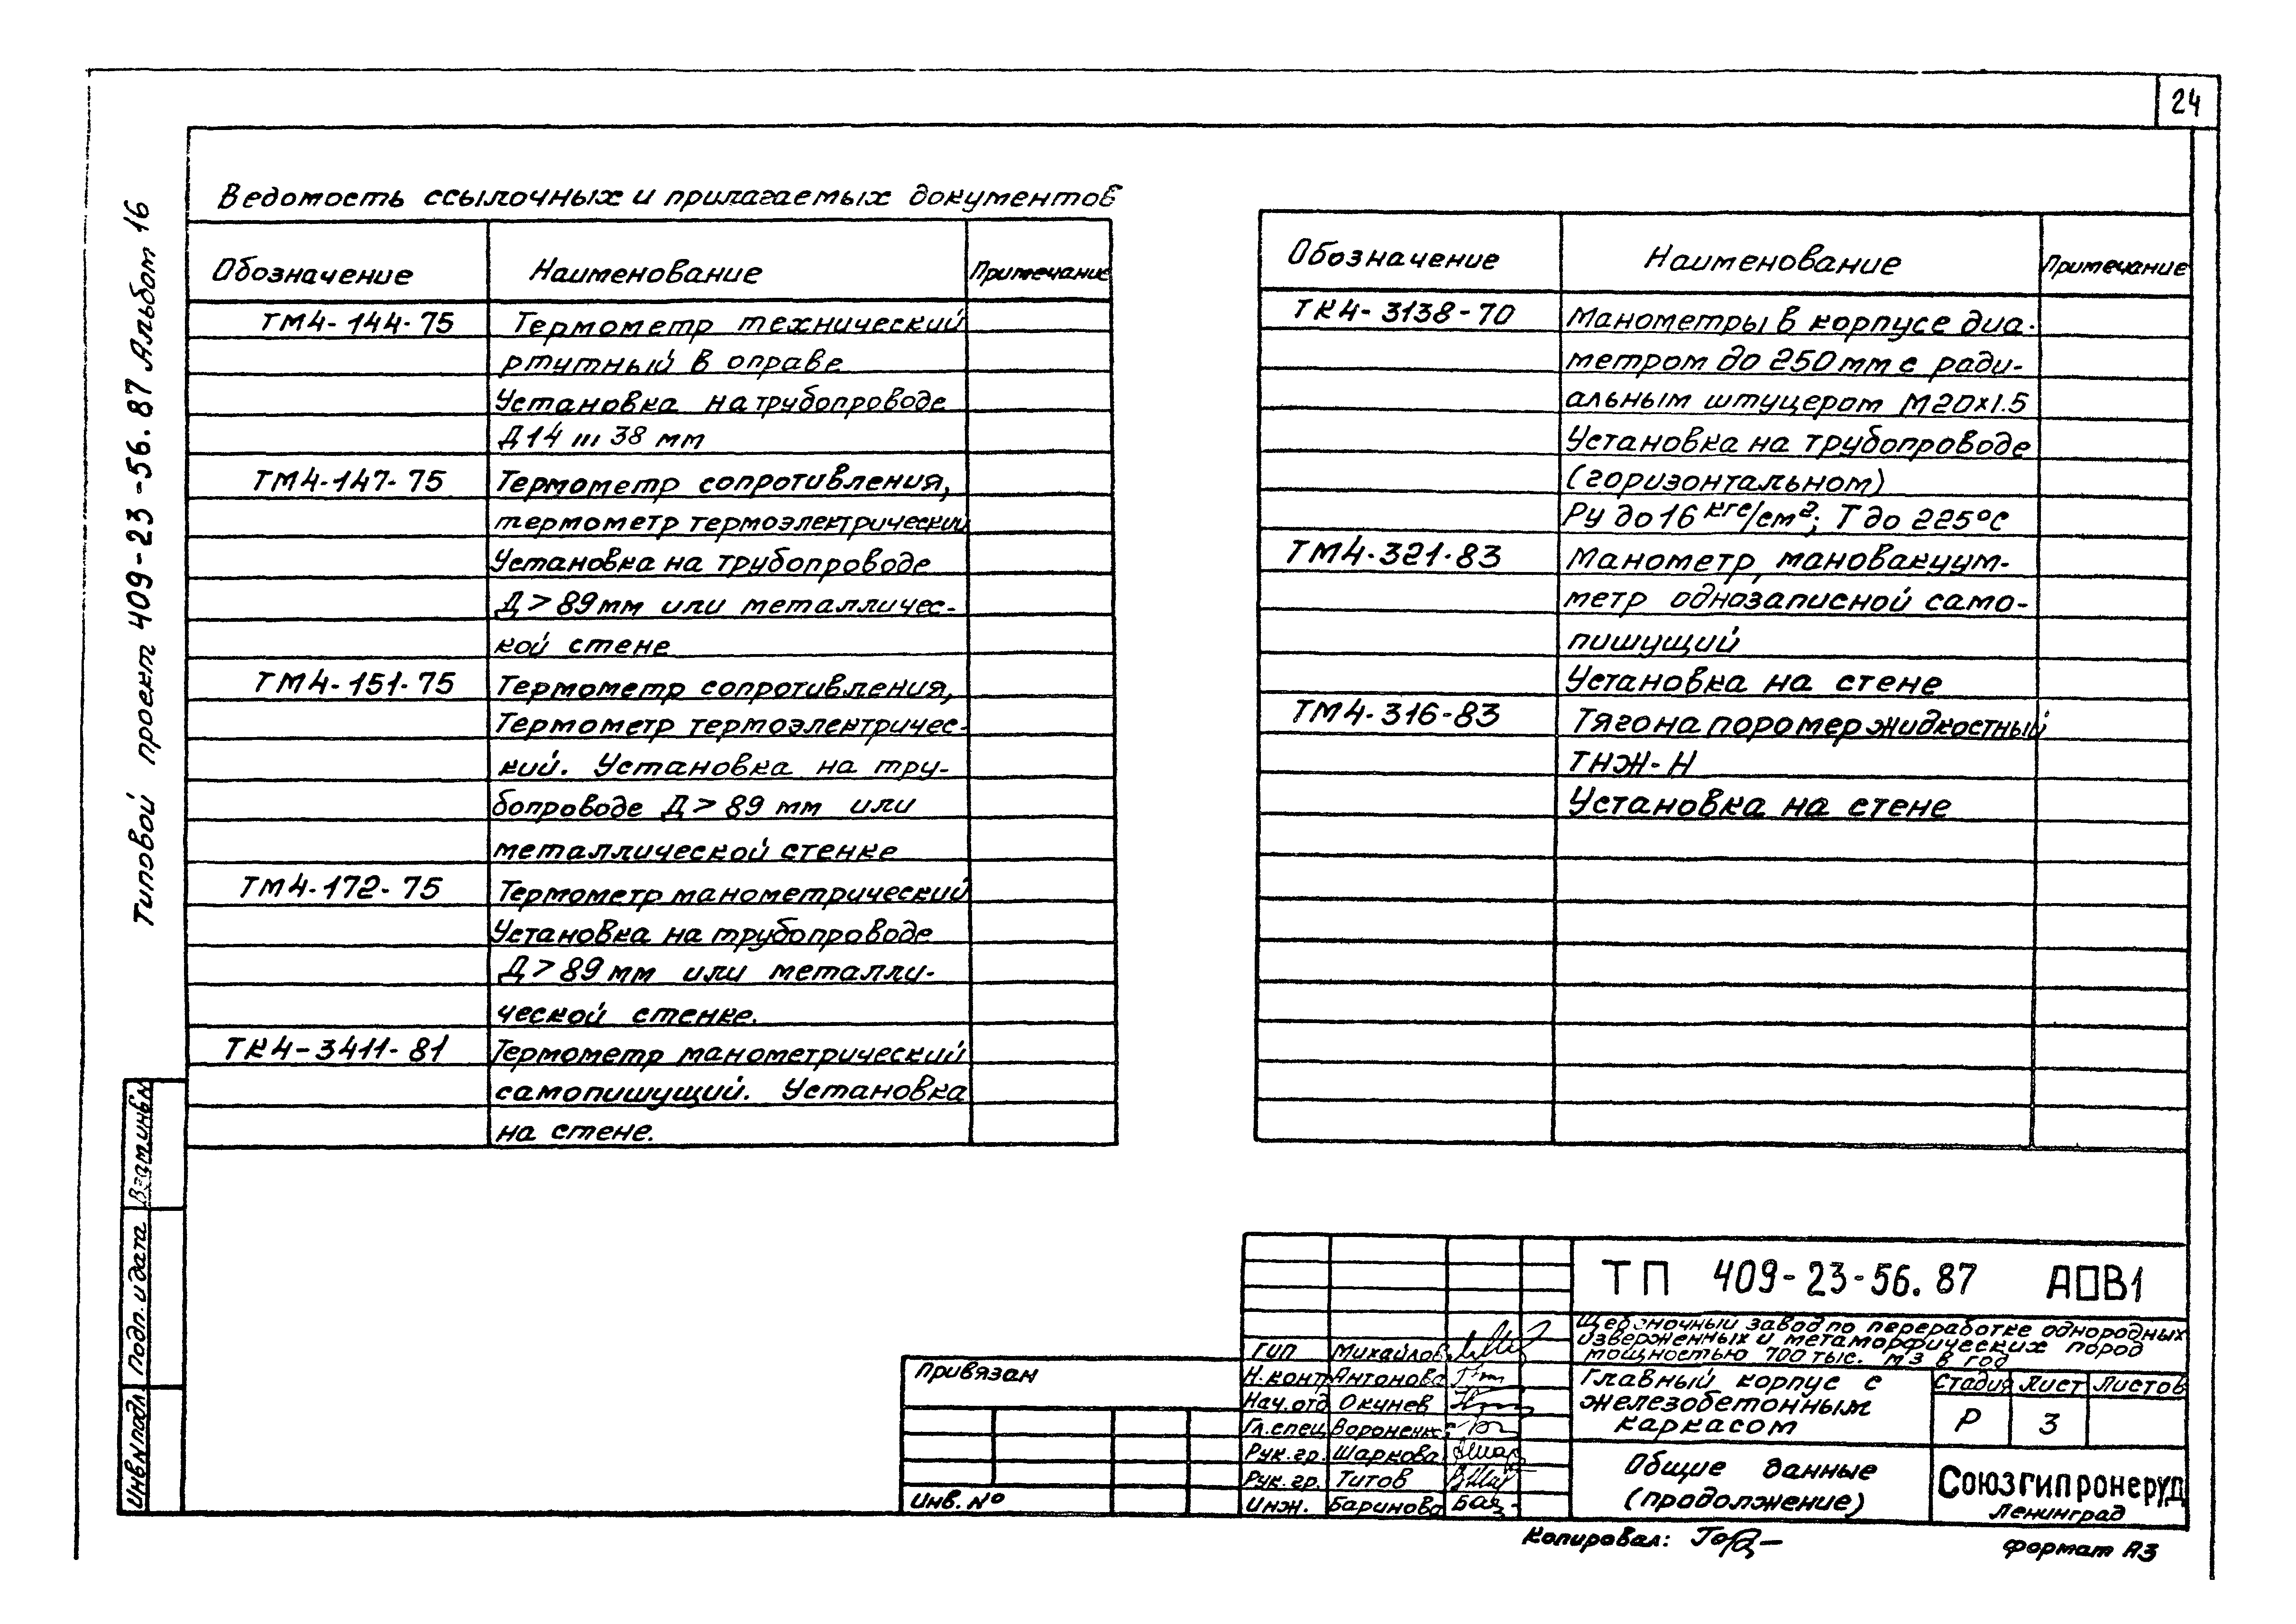 24
Типовой проект 409-23-56.87 Альбом 16
Ведомость ссылочных и прилагаемых документов
Обозначение Наименование Примечание
ТМ4-144-75 Термометр технический
ртутный в оправе
Установка на трубопроводе
Д 14 ... 38 мм
ТМ4-147-75 Термометр сопротивления,
термометр термоэлектрический
Установка на трубопроводе
Д > 89 мм или металличес-
кой стене
ТМ4-151-75 Термометр сопротивления,
Термометр термоэлектричес-
кий. Установка на тру-
бопроводе Д > 89 мм или
металлической стенке
ТМ4-172-75 Термометр манометрический
Установка на трубопроводе
Д > 89 мм или металли-
ческой стенке.
ТК4-3411-81 Термометр манометрический
самопишущий. Установка
на стене.
Обозначение Наименование Примечание
ТК4-3138-70 Манометры в корпусе диа-
метром до 250 мм с ради-
альным штуцером М20×1.5
Установка на трубопроводе
(горизонтальном)
Ру до 16 кгс/см²; Т до 225°С
ТМ4-321-83 Манометр, мановакуум-
метр однозаписной само-
пишущий
Установка на стене
ТМ4-316-83 Тягонапоромер жидкостный
ТНЖ-Н
Установка на стене
Взам.инв.N
Подп. и дата
Инв.N подл.
Привязан
Инв. №
ГИП Михайлов
Н.контр Антонова
Нач.отд Окунев
Гл.спец Вороненк
Рук.гр. Шаркова
Рук.гр. Титов
Инж. Баринова
ТП 409-23-56.87 АОВ1
Щебеночный завод по переработке однородных
изверженных и метаморфических пород
мощностью 700 тыс. м3 в год
Главный корпус с
железобетонным
каркасом
Стадия Лист Листов
Р 3
Общие данные
(продолжение)
Союзгипронеруд
Ленинград
Копировал:
формат А3